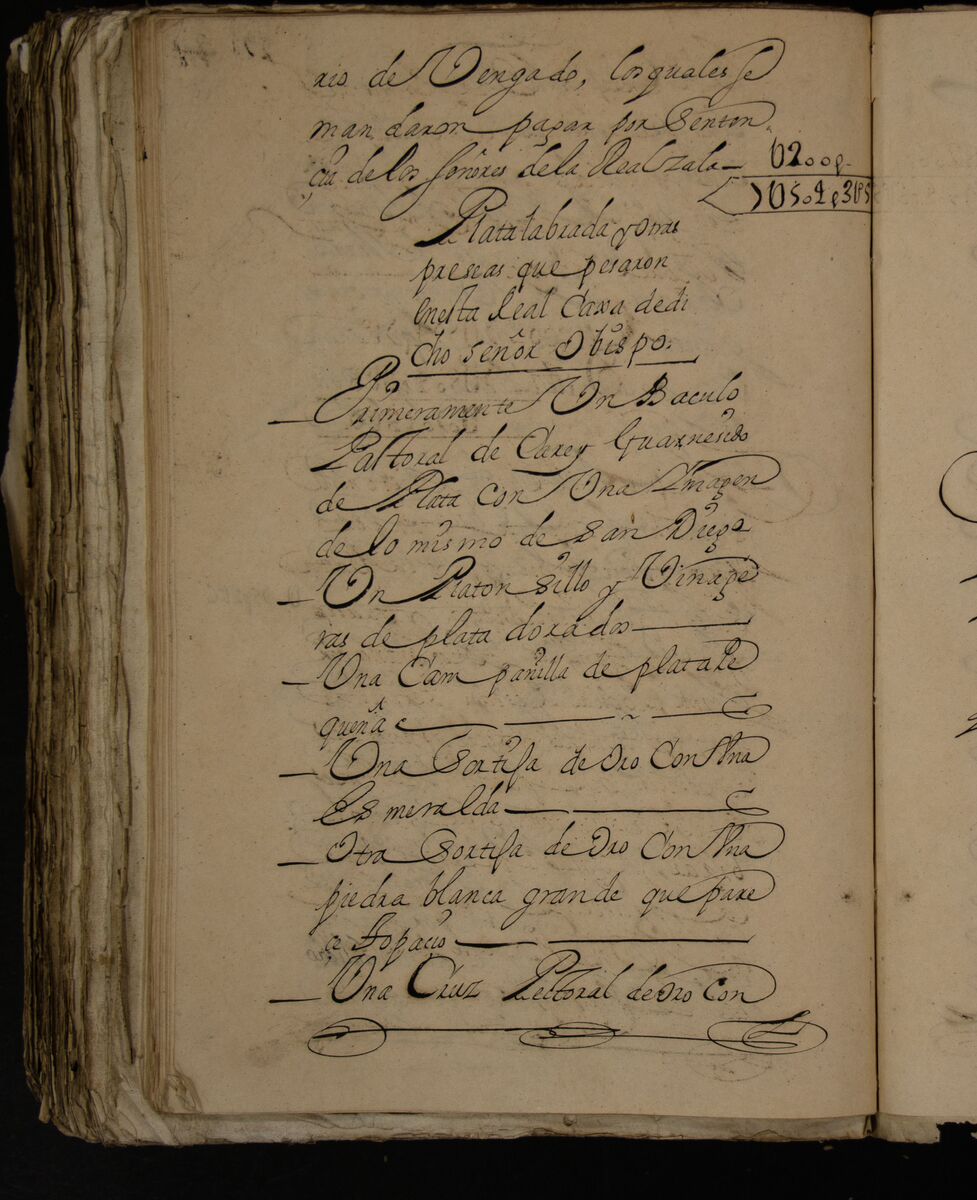 rio de Vengado, los quales se
mandaron pagar por senten
çia de los señores de la Real zala — U200 p.
Plata labrada y otras
preseas que pesaron
enesta Real Caxa dedi
cho señor Obispo.
Primeramente Un Baculo
Pastoral de Carey Guarnesido
de Plata con Una Ymagen
de lo mismo de san Diego
Un Platonsillo y Vinage
ras de plata dorados
Una Campanilla de plata Pe
queña
Una Sortija de Oro Con Vna
Esmeralda
Otra Sortija de Oro Con Vna
piedra blanca grande que pare
ce Topaçio
Una Cruz Pectoral de Oro Con